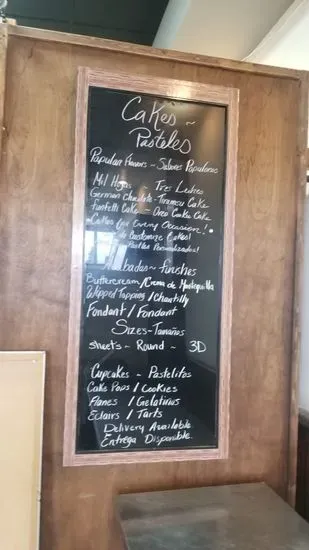 Cakes ~
Pasteles
Popular Flavors ~ Sabores Populares
Mil Hojas ~ Tres Leches
German Chocolate - Tiramisu Cake
Funfetti Cake ~ Oreo Cookie Cake
Cakes for Every Occasion!
Customize Cakes!
Pasteles Personalizados!
Acabados ~ finishes
Buttercream / Crema de Mantequilla
Whipped Topping / Chantilly
Fondant / Fondant
Sizes - Tamaños
sheets ~ Round ~ 3D
Cupcakes ~ Pastelitos
Cake Pops / Cookies
Flanes / Gelatinas
Eclairs / Tarts
Delivery Available
Entrega Disponible.